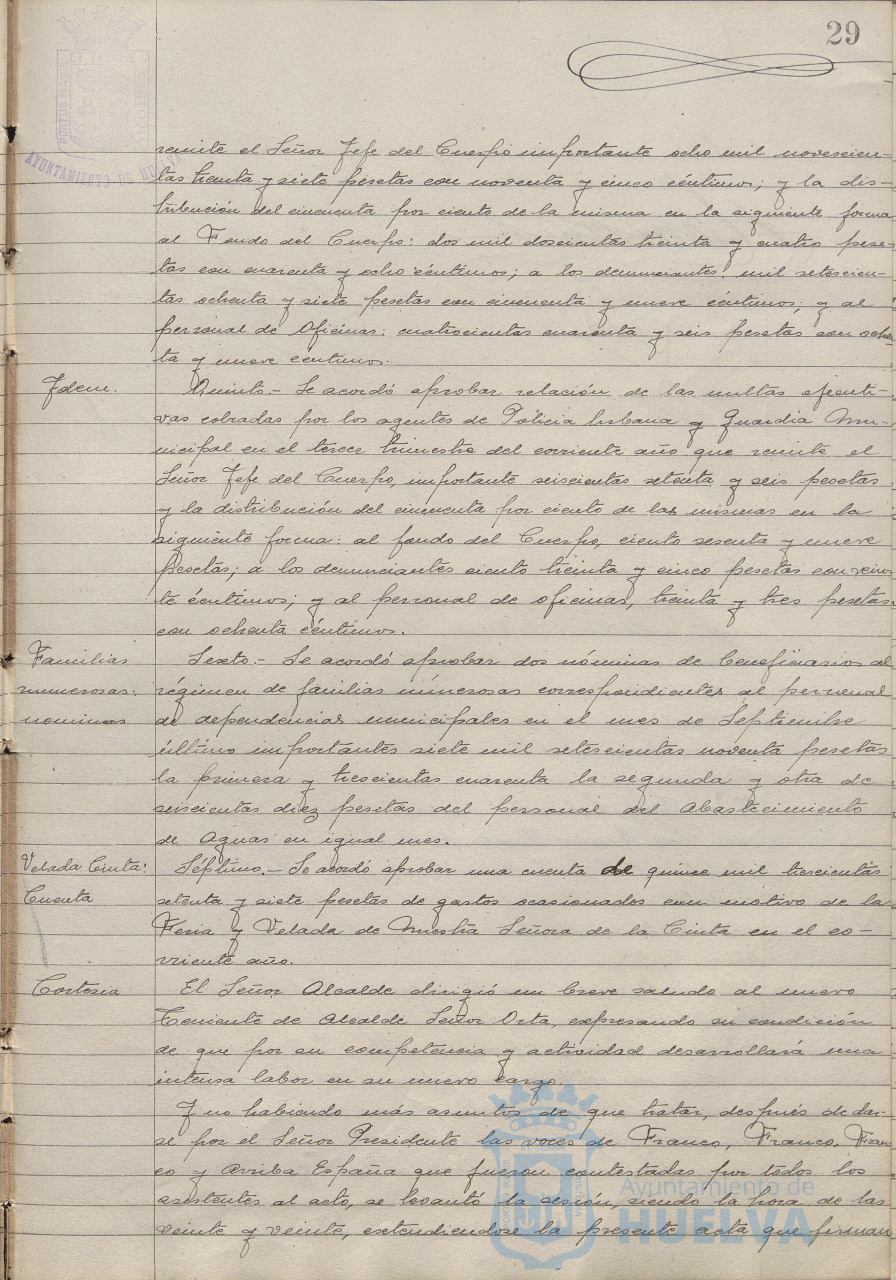 29
PORTUS MARIS
AYUNTAMIENTO DE HUELVA
remite el Señor Jefe del Cuerpo importante ocho mil novescien-
tas treinta y siete pesetas con noventa y cinco céntimos; y la dis-
tribución del cincuenta por ciento de la misma en la siguiente forma
al Fondo del Cuerpo: dos mil doscientas treinta y cuatro pese-
tas con cuarenta y ocho céntimos; a los denunciantes: mil setescien-
tas ochenta y siete pesetas con cincuenta y nueve céntimos; y al
personal de Oficinas: cuatrocientas cuarenta y seis pesetas con ochen-
ta y nueve céntimos.
Idem.
Quinto.- Se acordó aprobar relación de las multas efecti-
vas cobradas por los agentes de Policia Urbana y Guardia Mu-
nicipal en el tercer trimestre del corriente año que remite el
Señor Jefe del Cuerpo, importante seiscientas setenta y seis pesetas
y la distribución del cincuenta por ciento de las mismas en la
siguiente forma: al fondo del Cuerpo, ciento sesenta y nueve
pesetas; a los denunciantes ciento treinta y cinco pesetas con vein-
te céntimos; y al personal de oficinas, treinta y tres pesetas
con ochenta céntimos.
Familias
numerosas:
nominas
Sexto.- Se acordó aprobar dos nóminas de beneficiarios al
régimen de familias númerosas correspondientes al personal
de dependencias municipales en el mes de Septiembre
último importantes siete mil setescientas noventa pesetas
la primera y trescientas cuarenta la segunda y otra de
seiscientas diez pesetas del personal del Abastecimiento
de Aguas en igual mes.
Velada Cinta:
Cuenta
Séptimo.- Se acordó aprobar una cuenta de quince mil trescientas
setenta y siete pesetas de gastos ocasionados con motivo de la
Feria y Velada de Nuestra Señora de la Cinta en el co-
rriente año.
Cortesia
El Señor Alcalde dirigió un breve saludo al nuevo
Teniente de Alcalde Señor Orta, expresando su condición
de que por su competencia y actividad desarrollará una
intensa labor en su nuevo cargo.
Y no habiendo más asuntos de que tratar, después de dar-
se por el Señor Presidente las voces de Franco, Franco, Fran-
co y Arriba España que fueron contestadas por todos los
asistentes al acto, se levantó la sesión, siendo la hora de las
veinte y veinte, extendiendose la presente acta que firman
Ayuntamiento de
HUELVA